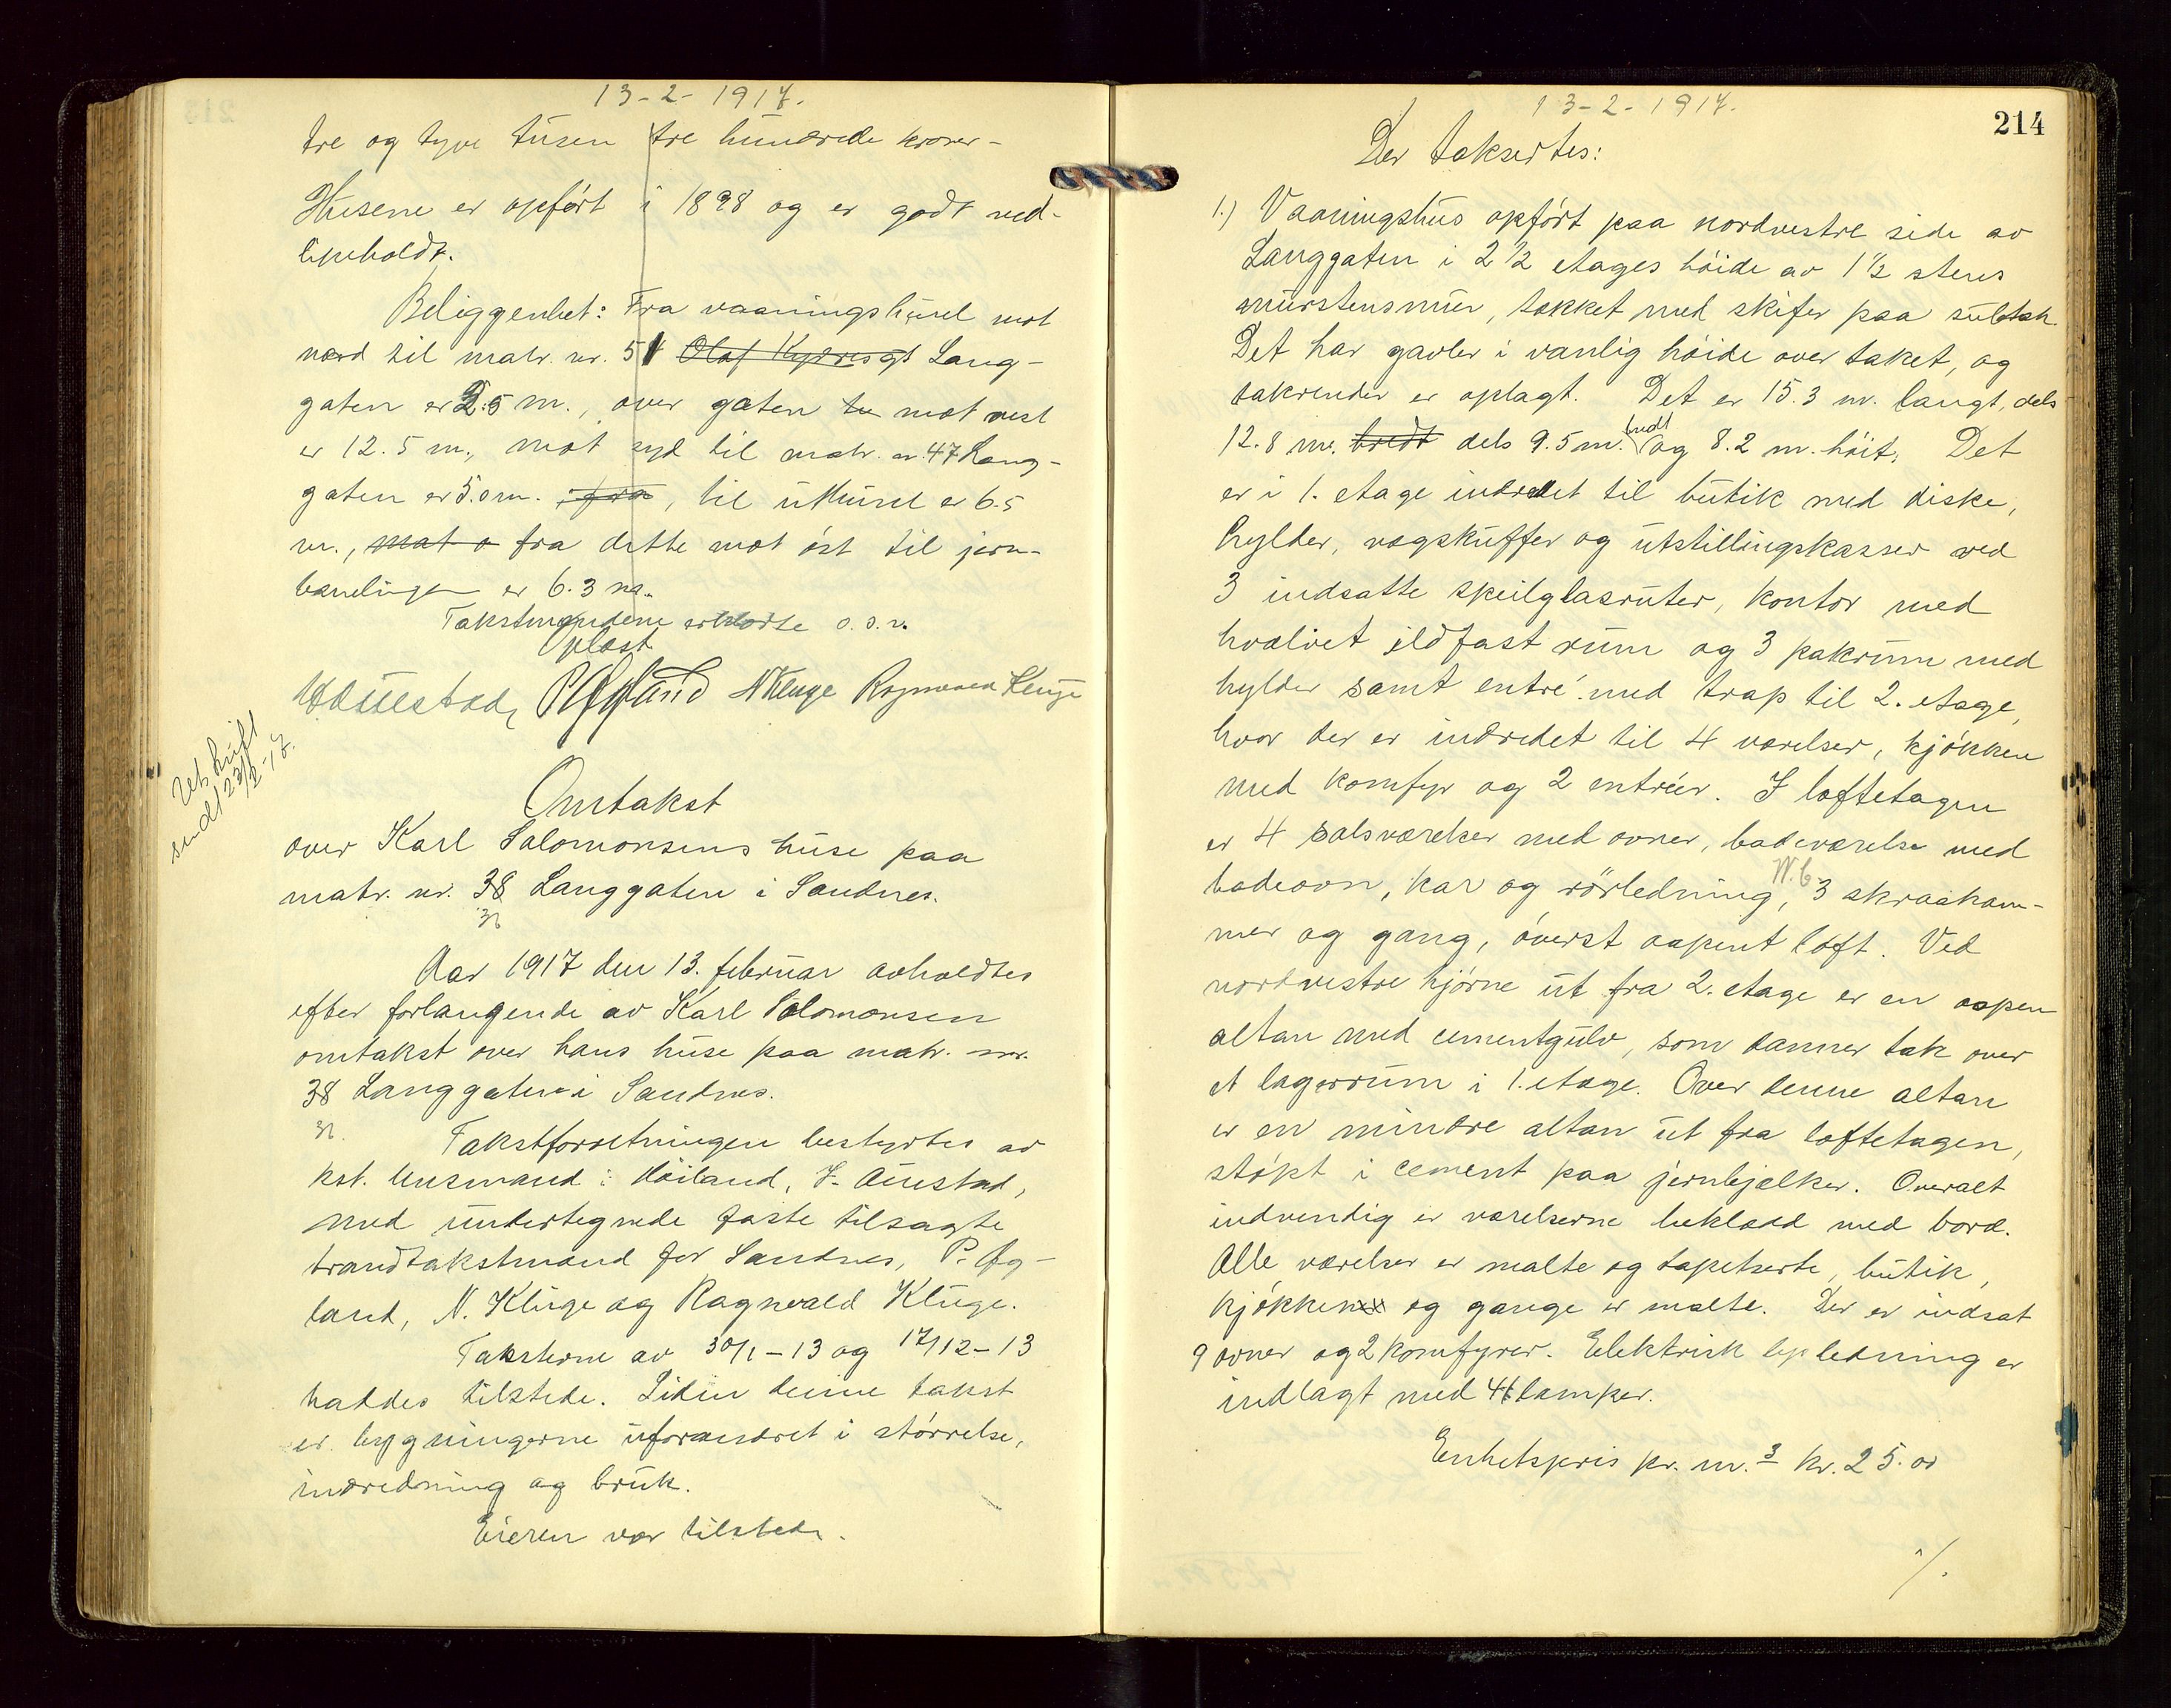 13-2-1917.
tre og tyve tusen tre hundrede kroner-
Husene er opført i 1898 og er godt ved-
likeholdt.
Beliggenhet: Fra vaaningshuset mot
nord til matr. nr. 51 Olaf Kydresgt Lang-
gaten er 2.5 m., over gaten tu mot vest
er 12.5 m., mot syd til matr. nr. 47 Lang-
gaten er 5.0 m. , fra, til uthuset er 6.5
m., mot o fra dette mot øst til jern-
banelinjen er 6.3 m..
Takstmændene erklærte o.s.v.
Oplæst
P. Øgland N Kluge Ragnvald Kluge
Utskrift
sendt 23/2-17.
Omtakst
over Karl Salomonsens huse paa
matr. nr. 38 Langgaten i Sandnes.
Aar 1917 den 13. februar avholdtes
efter forlangende av Karl Salomonsen
omtakst over hans huse paa matr. nr.
38 Langgaten i Sandnes.
Takstforretningen bestyrtes av
kst. lensmand i Høiland, J. Auestad,
med undertegnede faste tilsagte
brandtakstmænd for Sandnes, P. Øg-
land, N. Kluge og Ragnvald Kluge.
Taksterne av 30/1-13 og 17/12-13
haddes tilstede. Siden denne takst
er bygningerne uforandret i størrelse,
indredning og bruk.
Eieren var tilstede.
13-2-1917.
214
Der taksertes:
1.) Vaaningshus opført paa nordvestre side av
Langgaten i 2 1/2 etages høide av 1 1/2 stens
murstensmur, tækket med skifer paa sultak.
Det har gavler i vanlig høide over taket, og
takrender er oplagt. Det er 15.3 m. langt, dels
12.8 m. bredt dels 9.5 m. bredt og 8.2 m. høit. Det
er i 1. etage indredet til butik med diske,
hylder, vægskuffer og utstillingskasser ved
3 indsatte speilglasruter, kontor med
hvælvet ildfast rum og 3 pakrum med
hylder samt entré med trap til 2. etage,
hvor der er indredet til 4 værelser, kjøkken
med komfyr og 2 entréer. I loftetagen
er 4 salsværelser med ovner, badeværelse med
badeovn, kar og rørledning, W.C 3 skraakam-
mer og gang, øverst aapent loft. Ved
nordvestre hjørne ut fra 2. etage er en aapen
altan med cementgulv, som danner tak over
et lagerrum i 1. etage. Over denne altan
er en mindre altan ut fra loftetagen,
støpt i cement paa jernbjælker. Overalt
indvendig er værelserne beklædd med bord.
Alle værelser er malte og tapetserte, butik,
kjøkken og gange er malte. Der er indsat
9 ovner og 2 komfyrer. Elektrisk lysledning er
indlagt med 41 lamper.
Enhetspris pr. m.3 kr. 25.00
./.